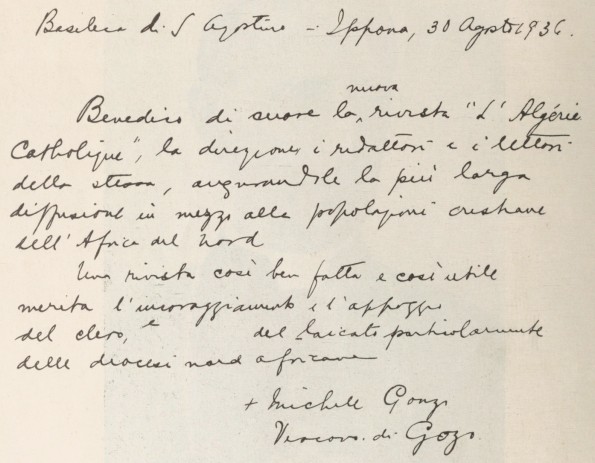 Basilica di S Agostino - Ippona, 30 Agosto 1936.
nuova
Benedico di cuore la rivista "L'Algérie
Catholique", la direzione, i redattori e i lettori
della stessa, augurandole la più larga
diffusione in mezzo alle popolazioni cristiane
dell'Africa del Nord
Una rivista così ben fatta e così utile
merita l'incoraggiamento e l'appoggio
del clero, e del laicato particolarmente
delle diocesi nord africane
+ Michele Gonzi
Vescovo di Gozo.